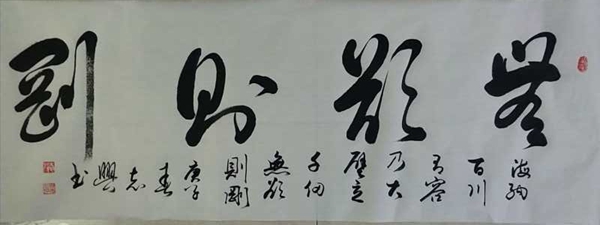 無欲則剛
海納
百川
有容
乃大
壁立
千仞
無欲
則剛
庚子
春
志
興
書